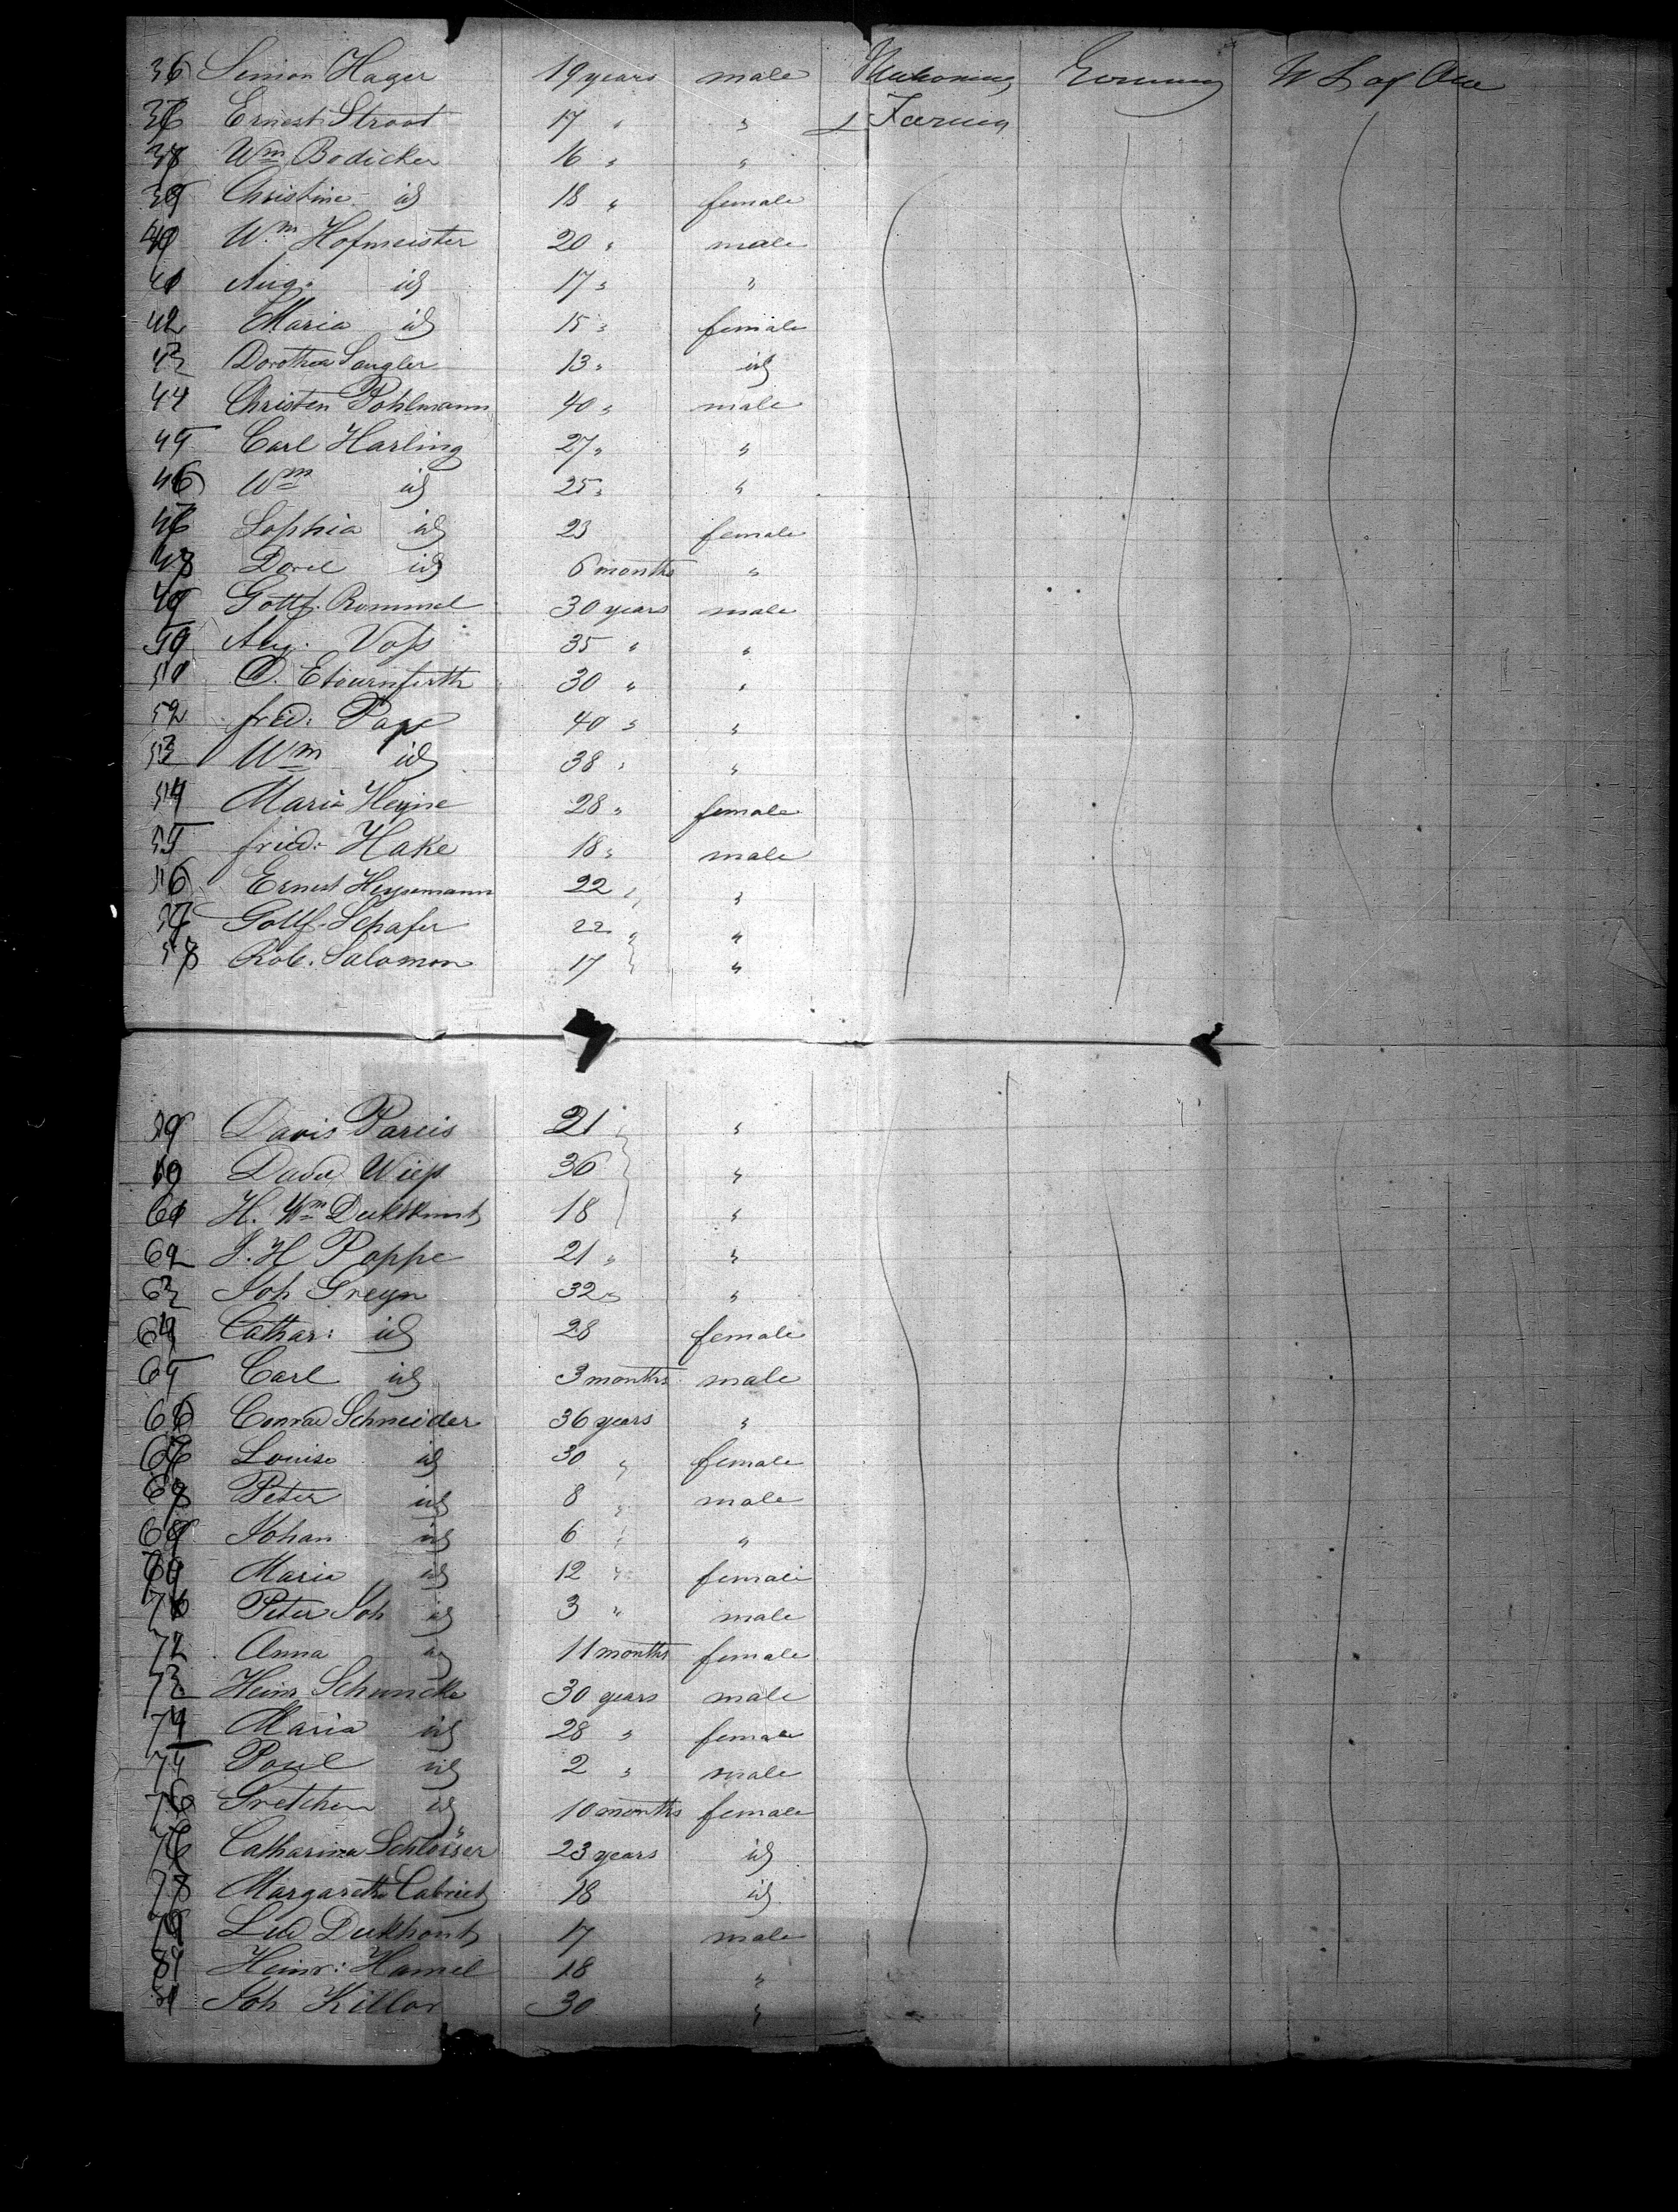 36 Simon Hager 19 years male Germany U S of Am
37 Ernest Stroot 17 " " & Farmer
38 Wm Bodicker 16 " "
39 Christine id 18 " female
40 Wm Hofmeister 20 " male
41 Aug. id 17 " "
42 Maria id 15 " female
43 Dorothea Sangler 13 " id
44 Christen Pohlmann 40 " male
45 Carl Harling 27 " "
46 Wm id 25 " "
47 Sophia id 23 female
48 Dore id 6 months "
49 Gottf. Rommel 30 years male
50 Aug. Voſs 35 " "
51 30 " "
52 fried: Pape 40 " "
53 Wm id 38 " "
54 Maria Heyne 28 " female
55 fried: Hake 18 " male
56 Ernest Heysemann 22 " "
57 Gottf. Schafer 22 " "
58 Rob. Salomon 17 "
59 Davis Pareis 21 "
60 David 36 "
61 H. Wm 18 "
62 J. H Poppe 21 " "
63 Joh Greyn 32 " "
64 Cathar: id 28 female
65 Carl id 3 months male
66 Conrad Schneider 36 years "
67 Louise id 30 " female
68 Peter id 8 " male
69 Johan id 6 " "
70 Maria id 12 " female
71 Peter Joh id 3 " male
72 Anna id 11 months female
73 Heinr Schuncke 30 years male
74 Maria id 28 " female
75 Paul id 2 " male
76 Gretchen id 10 months female
77 Catharina Schlösser 23 years id
78 Margareth 18 id
79 Lud 17 male
80 Heinr: Hamel 18 "
81 Joh Killor 30 "